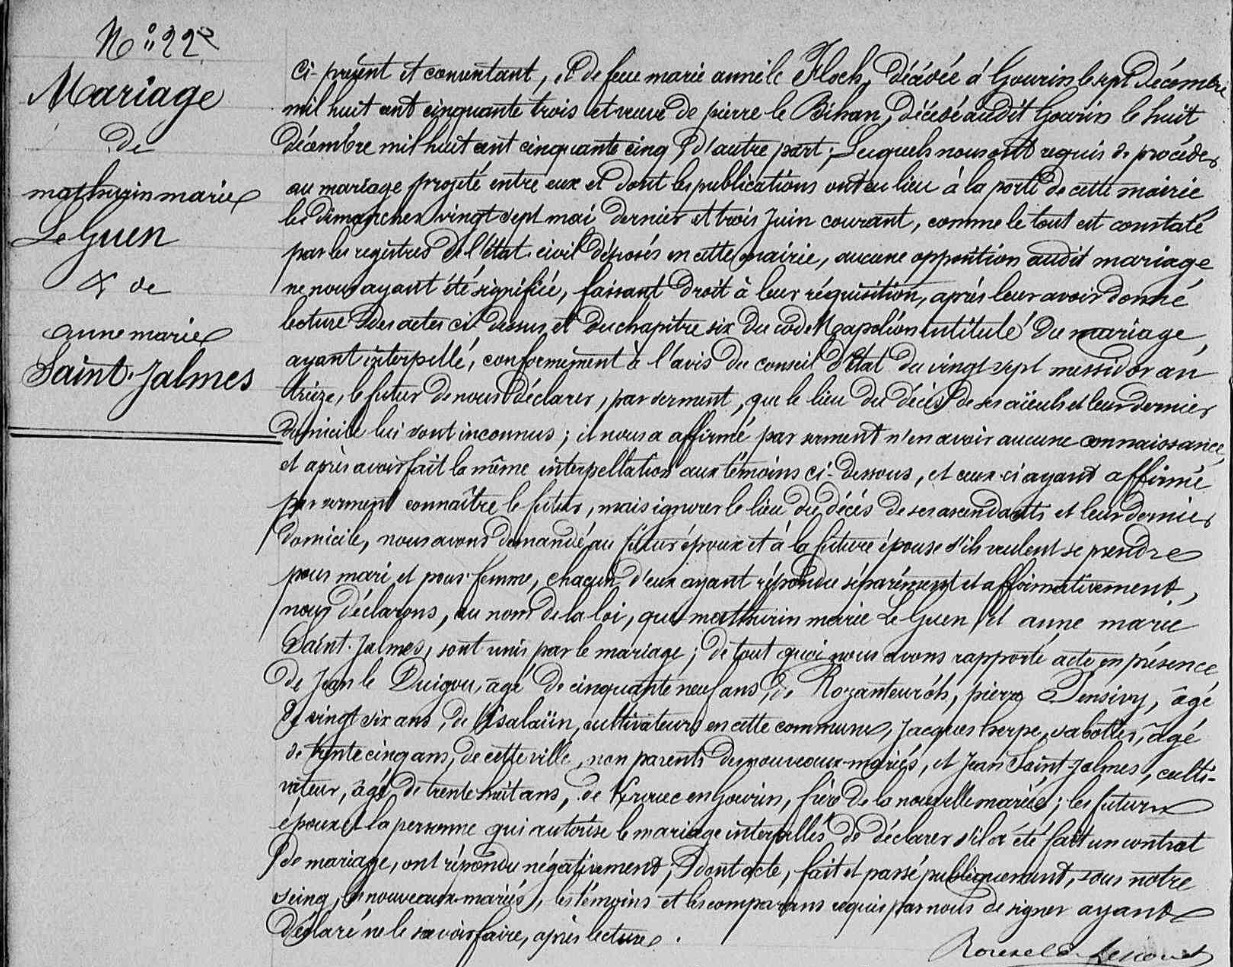 N° 22
Mariage
de
mathurin marie
Le Guen
& de
anne marie
Saint-Jalmes
ci-présent et consentant, et de feue marie anne le Floch, décédée à Gourin le sept décembre
mil huit cent cinquante trois et veuve de pierre le Bihan, décédé audit Gourin le huit
décembre mil huit cent cinquante cinq d'autre part; Lesquels nous ont requis de procéder
au mariage projeté entre eux et dont les publications ont eu lieu à la porte de cette mairie
les dimanches vingt sept mai dernier et trois Juin courant, comme le tout est constaté
par les registres de l'état-civil déposés en cette mairie, aucune opposition audit mariage
ne nous ayant été signifiée, faisant droit à leur réquisition, après leur avoir donné
lecture des actes ci-dessus et du chapitre six du code Napoléon intitulé du mariage,
ayant interpellé, conformément à l'avis du conseil d'état du vingt sept messidor an
treize, le futur de nous déclarer, par serment, que le lieu du décès de ses aïeuls et leur dernier
domicile lui sont inconnus; il nous a affirmé par serment n'en avoir aucune connaissance,
et après avoir fait la même interpellation aux témoins ci-dessous, et ceux-ci ayant affirmé
par serment connaître le futur, mais ignorer le lieu du décès de ses ascendants et leur dernier
domicile, nous avons demandé au futur époux et à la future épouse s'ils veulent se prendre
pour mari et pour femme, chacun d'eux ayant répondu séparément et affirmativement,
nous déclarons, au nom de la loi, que mathurin marie Le Guen et anne marie
Saint-Jalmes, sont unis par le mariage; de tout quoi nous avons rapporté acte en présence
de Jean le Duigou, âgé de cinquante neuf ans, de Rozanteurc'h, pierre Pensivy, âgé
de vingt six ans, de Kisalaün, cultivateurs en cette commune, Jacques herpe, sabotier, âgé
de trente cinq ans, de cette ville, non parents des nouveaux-mariés, et Jean Saint-Jalmes, culti-
vateur, âgé de trente huit ans, de en Gourin, frère de la nouvelle mariée; les futurs
époux et la personne qui autorise le mariage interpellés de déclarer s'il a été fait un contrat
de mariage, ont répondu négativement; dont acte, fait et passé publiquement, sous notre
seing, les nouveaux-mariés, les témoins et les comparans requis par nous de signer ayant
déclaré ne le savoir faire, après lecture.